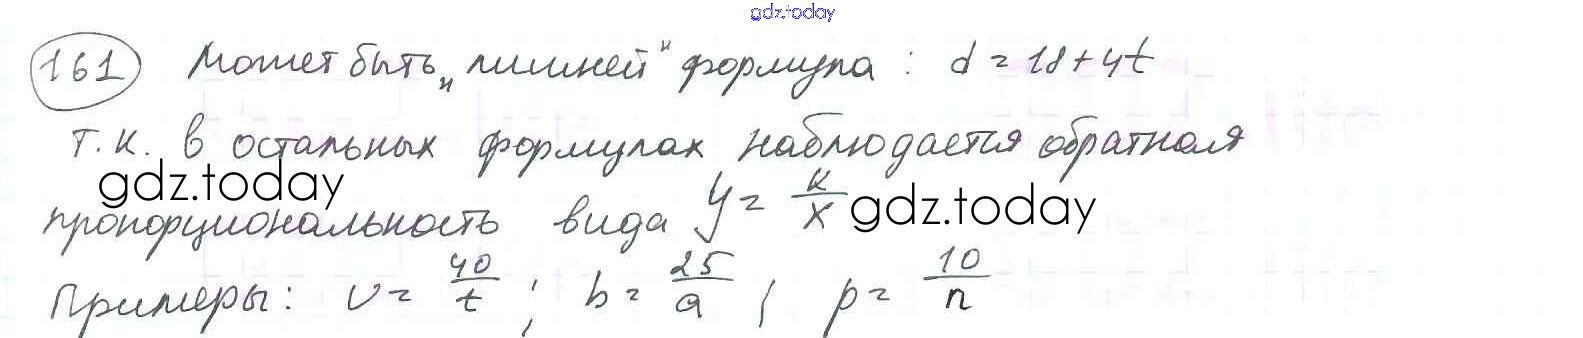 gdz.today
161 Может быть „лишней" формула: d = 18 + 4t
т.к. в остальных формулах наблюдается обратная
gdz.today
пропорциональность вида y = k/x
gdz.today
Примеры: v = 40/t ; b = 25/a ; p = 10/n